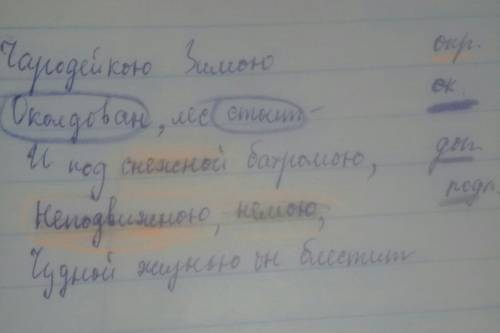 Чародейкою Зимою
Околдован, лес стоит -
И под снежной бахромою,
Неподвижною, немою,
Чудной жизнью он блестит
опр.
ск.
доп.
подл.